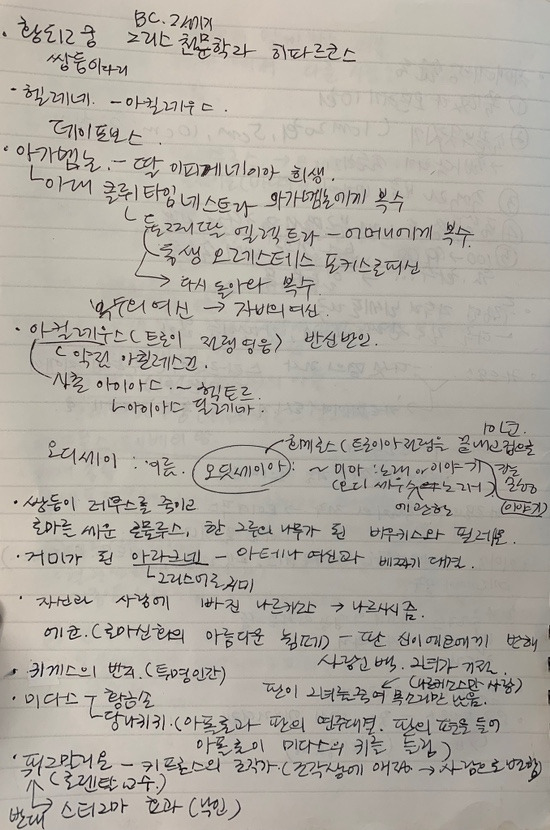 BC. 2세기
· 황도12궁 그리스 천문학자 히파르코스
쌍둥이자리
· 헬레네. - 아킬레우스.
데이포보스
· 아가멤논. - 딸 이피게네이아 희생.
아내 클뤼타임네스트라 아가멤논에게 복수
둘째딸 엘렉트라 - 어머니에게 복수.
동생 오레스테스 포키스로피신
→ 다시 돌아와 복수.
복수의 여신 → 자비의 여신.
· 아킬레우스 (트로이 전쟁 영웅) 반신반인.
약점 아킬레스건.
사촌 아이아스 ~ 헥토르
아이아스 딜레마.
이타카.
오디세이 : 여름. 오딧세이아 : 호메로스 (트로이아 전쟁을 끝내고 집으로
~ 이아 : 노래 or 이야기 가는
(오디세우스의 노래) 여정
에 관한 (이야기)
· 쌍둥이 레무스를 죽이고
로마를 세운 로물루스, 한 그루의 나무가 된 바우키스와 필레몬.
· 거미가 된 아라크네 - 아테나 여신과 베짜기 대결.
그리스어로 거미
· 자신과 사랑에 빠진 나르키소스 → 나르시시즘.
에코. (로마신화의 아름다운 님페) - 판 신이 에코에게 반해
사랑고백. 그녀가 거절.
· 귀게스의 반지. (투명인간) (나르키소스만 사랑)
· 미다스 황금손 판이 그녀를 죽여 목소리만 남음.
당나귀귀. (아폴론과 판의 연주대결. 판의 편을 들어
아폴론이 미다스의 귀를 늘림)
· 피그말리온 - 키프로스의 조각가 (조각상에 애정 → 사람으로 변함)
(로젠탈 교수.)
반대 스티그마 효과 (낙인)